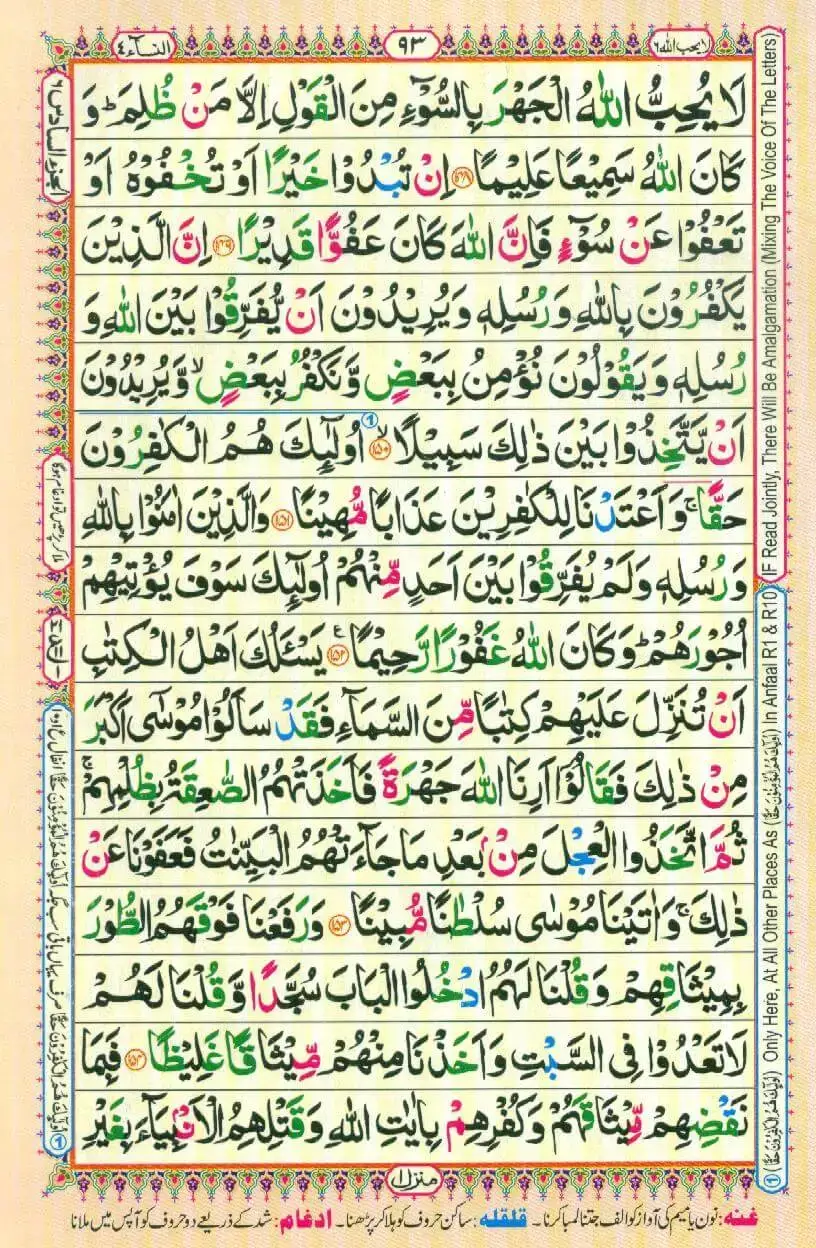 لا یحب اللہ ٦
٩٣
النسآء ٤
لَا یُحِبُّ اللّٰہُ الْجَہْرَ بِالسُّوْٓءِ مِنَ الْقَوْلِ اِلَّا مَنْ ظُلِمَ ؕ وَ
کَانَ اللّٰہُ سَمِیْعًا عَلِیْمًا ﴿۱۴۸﴾ اِنْ تُبْدُوْا خَیْرًا اَوْ تُخْفُوْہُ اَوْ
تَعْفُوْا عَنْ سُوْٓءٍ فَاِنَّ اللّٰہَ کَانَ عَفُوًّا قَدِیْرًا ﴿۱۴۹﴾ اِنَّ الَّذِیْنَ
یَکْفُرُوْنَ بِاللّٰہِ وَرُسُلِہٖ وَیُرِیْدُوْنَ اَنْ یُّفَرِّقُوْا بَیْنَ اللّٰہِ وَ
رُسُلِہٖ وَیَقُوْلُوْنَ نُؤْمِنُ بِبَعْضٍ وَّنَکْفُرُ بِبَعْضٍ ۙ وَّیُرِیْدُوْنَ
اَنْ یَّتَّخِذُوْا بَیْنَ ذٰلِکَ سَبِیْلًا ﴿۱۵۰﴾ۙ اُولٰٓئِکَ ہُمُ الْکٰفِرُوْنَ
حَقًّا ۚ وَاَعْتَدْنَا لِلْکٰفِرِیْنَ عَذَابًا مُّہِیْنًا ﴿۱۵۱﴾ وَالَّذِیْنَ اٰمَنُوْا بِاللّٰہِ
وَرُسُلِہٖ وَلَمْ یُفَرِّقُوْا بَیْنَ اَحَدٍ مِّنْہُمْ اُولٰٓئِکَ سَوْفَ یُؤْتِیْہِمْ
اُجُوْرَہُمْ ؕ وَکَانَ اللّٰہُ غَفُوْرًا رَّحِیْمًا ﴿۱۵۲﴾ع یَسْئَلُکَ اَہْلُ الْکِتٰبِ
اَنْ تُنَزِّلَ عَلَیْہِمْ کِتٰبًا مِّنَ السَّمَآءِ فَقَدْ سَاَلُوْا مُوْسٰۤی اَکْبَرَ
مِنْ ذٰلِکَ فَقَالُوْۤا اَرِنَا اللّٰہَ جَہْرَۃً فَاَخَذَتْہُمُ الصّٰعِقَۃُ بِظُلْمِہِمْ ۚ
ثُمَّ اتَّخَذُوا الْعِجْلَ مِنْۢ بَعْدِ مَا جَآءَتْہُمُ الْبَیِّنٰتُ فَعَفَوْنَا عَنْ
ذٰلِکَ ۚ وَاٰتَیْنَا مُوْسٰی سُلْطٰنًا مُّبِیْنًا ﴿۱۵۳﴾ وَرَفَعْنَا فَوْقَہُمُ الطُّوْرَ
بِمِیْثَاقِہِمْ وَقُلْنَا لَہُمُ ادْخُلُوا الْبَابَ سُجَّدًا وَّقُلْنَا لَہُمْ
لَا تَعْدُوْا فِی السَّبْتِ وَاَخَذْنَا مِنْہُمْ مِّیْثَاقًا غَلِیْظًا ﴿۱۵۴﴾ فَبِمَا
نَقْضِہِمْ مِّیْثَاقَہُمْ وَکُفْرِہِمْ بِاٰیٰتِ اللّٰہِ وَقَتْلِہِمُ الْاَنْۢبِیَآءَ بِغَیْرِ
منزل ١
غنہ: نون یا میم کی آواز کو الف جتنا لمبا کرنا۔ قلقلہ: ساکن حروف کو ہلا کر پڑھنا۔ ادغام: شد کے ذریعے دو حروف کو آپس میں ملانا
(IF Read Jointly, There Will Be Amalgamation (Mixing The Voice Of The Letters)
① (اُولٰٓئِکَ ہُمُ الْکٰفِرُوْنَ حَقًّا) Only Here, At All Other Places As (اُولٰٓئِکَ ہُمُ الْمُؤْمِنُوْنَ حَقًّا) In Anfaal R1 & R10
الجزء السادس ٦